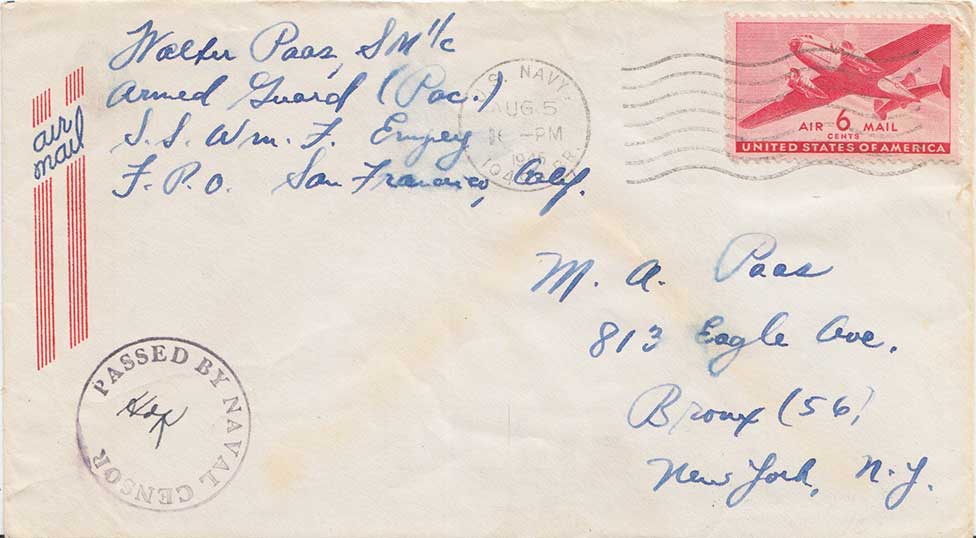 Walter Paas, SM 1/c
Armed Guard (Pac.)
S.S. Wm. F. Empey
F.P.O. San Francisco, Calif.
air
mail
U.S. NAVY
AUG 5
-PM
1945
AIR 6 MAIL
CENTS
UNITED STATES OF AMERICA
M. A. Paas
813 Eagle Ave.
Bronx (56)
New York, N.Y.
PASSED BY NAVAL CENSOR